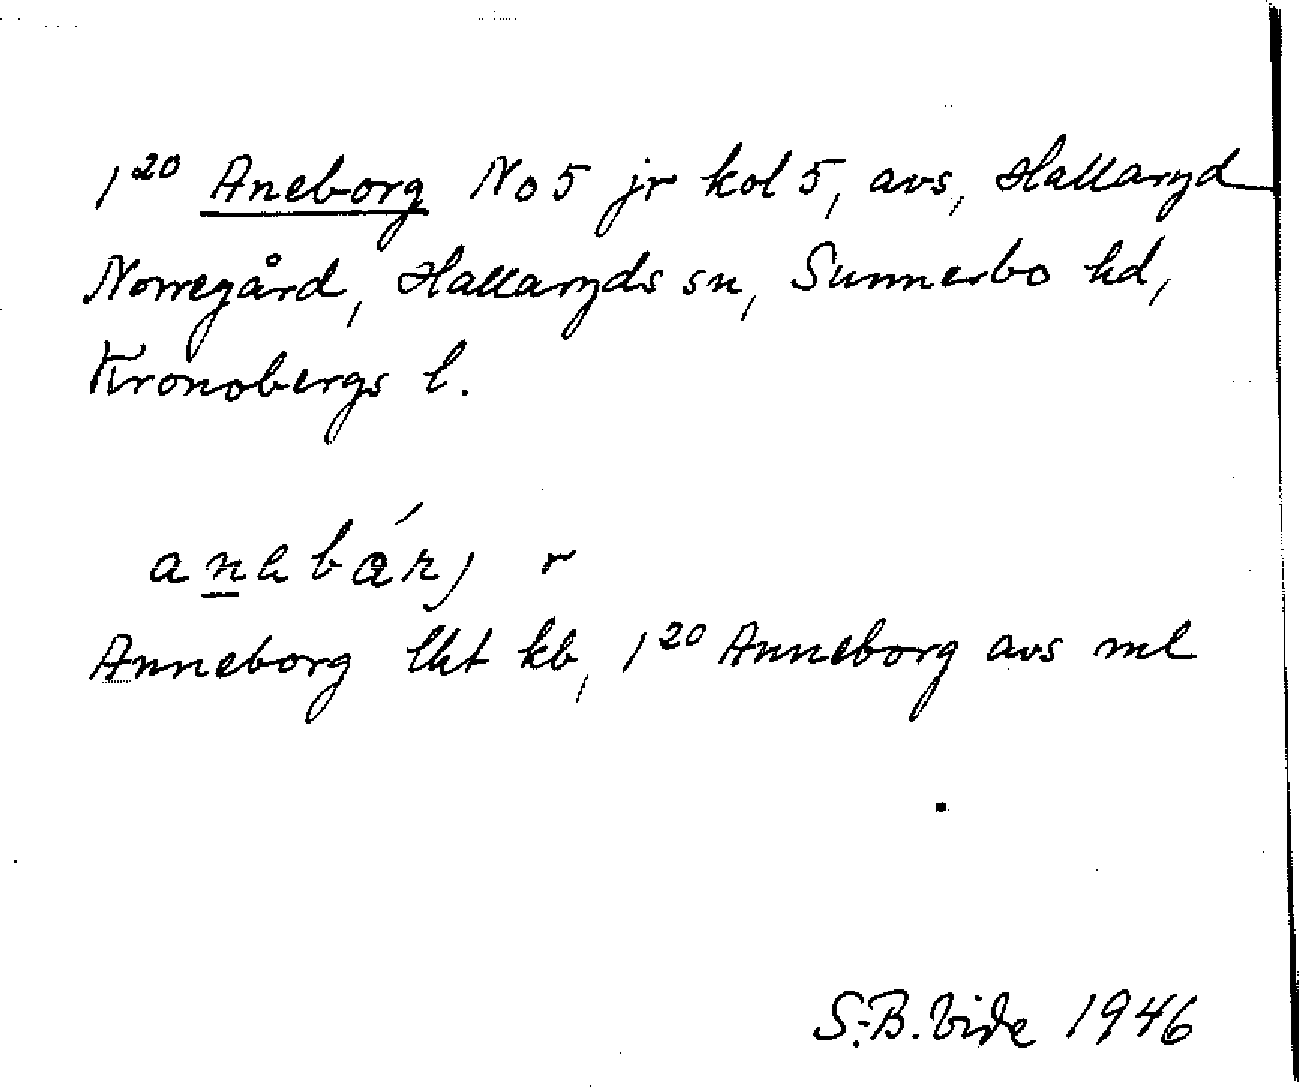 1²⁰ Aneborg No 5 jr kol 5, avs, Hallaryd
Norregård, Hallaryds sn, Sunnerbo hd,
Kronobergs l.
r
Anneborg lkt kb, 1²⁰ Anneborg avs ml
S.-B. Vide 1946